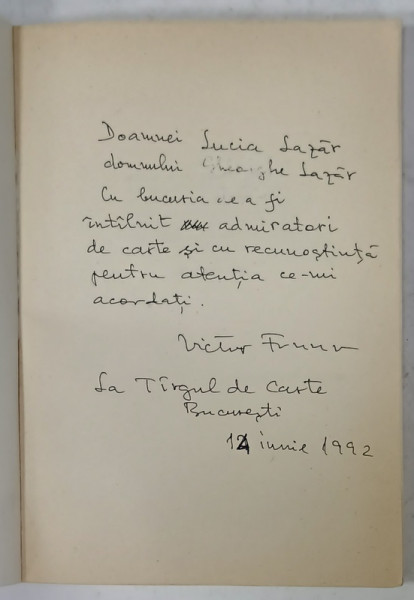 Doamnei Lucia Lazăr
domnului Gheorghe Lazăr
Cu bucuria de a fi
întîlnit admiratori
de carte și cu recunoștință
pentru atenția ce-mi
acordați.
Victor Frunză
La Tîrgul de Carte
București
12 iunie 1992